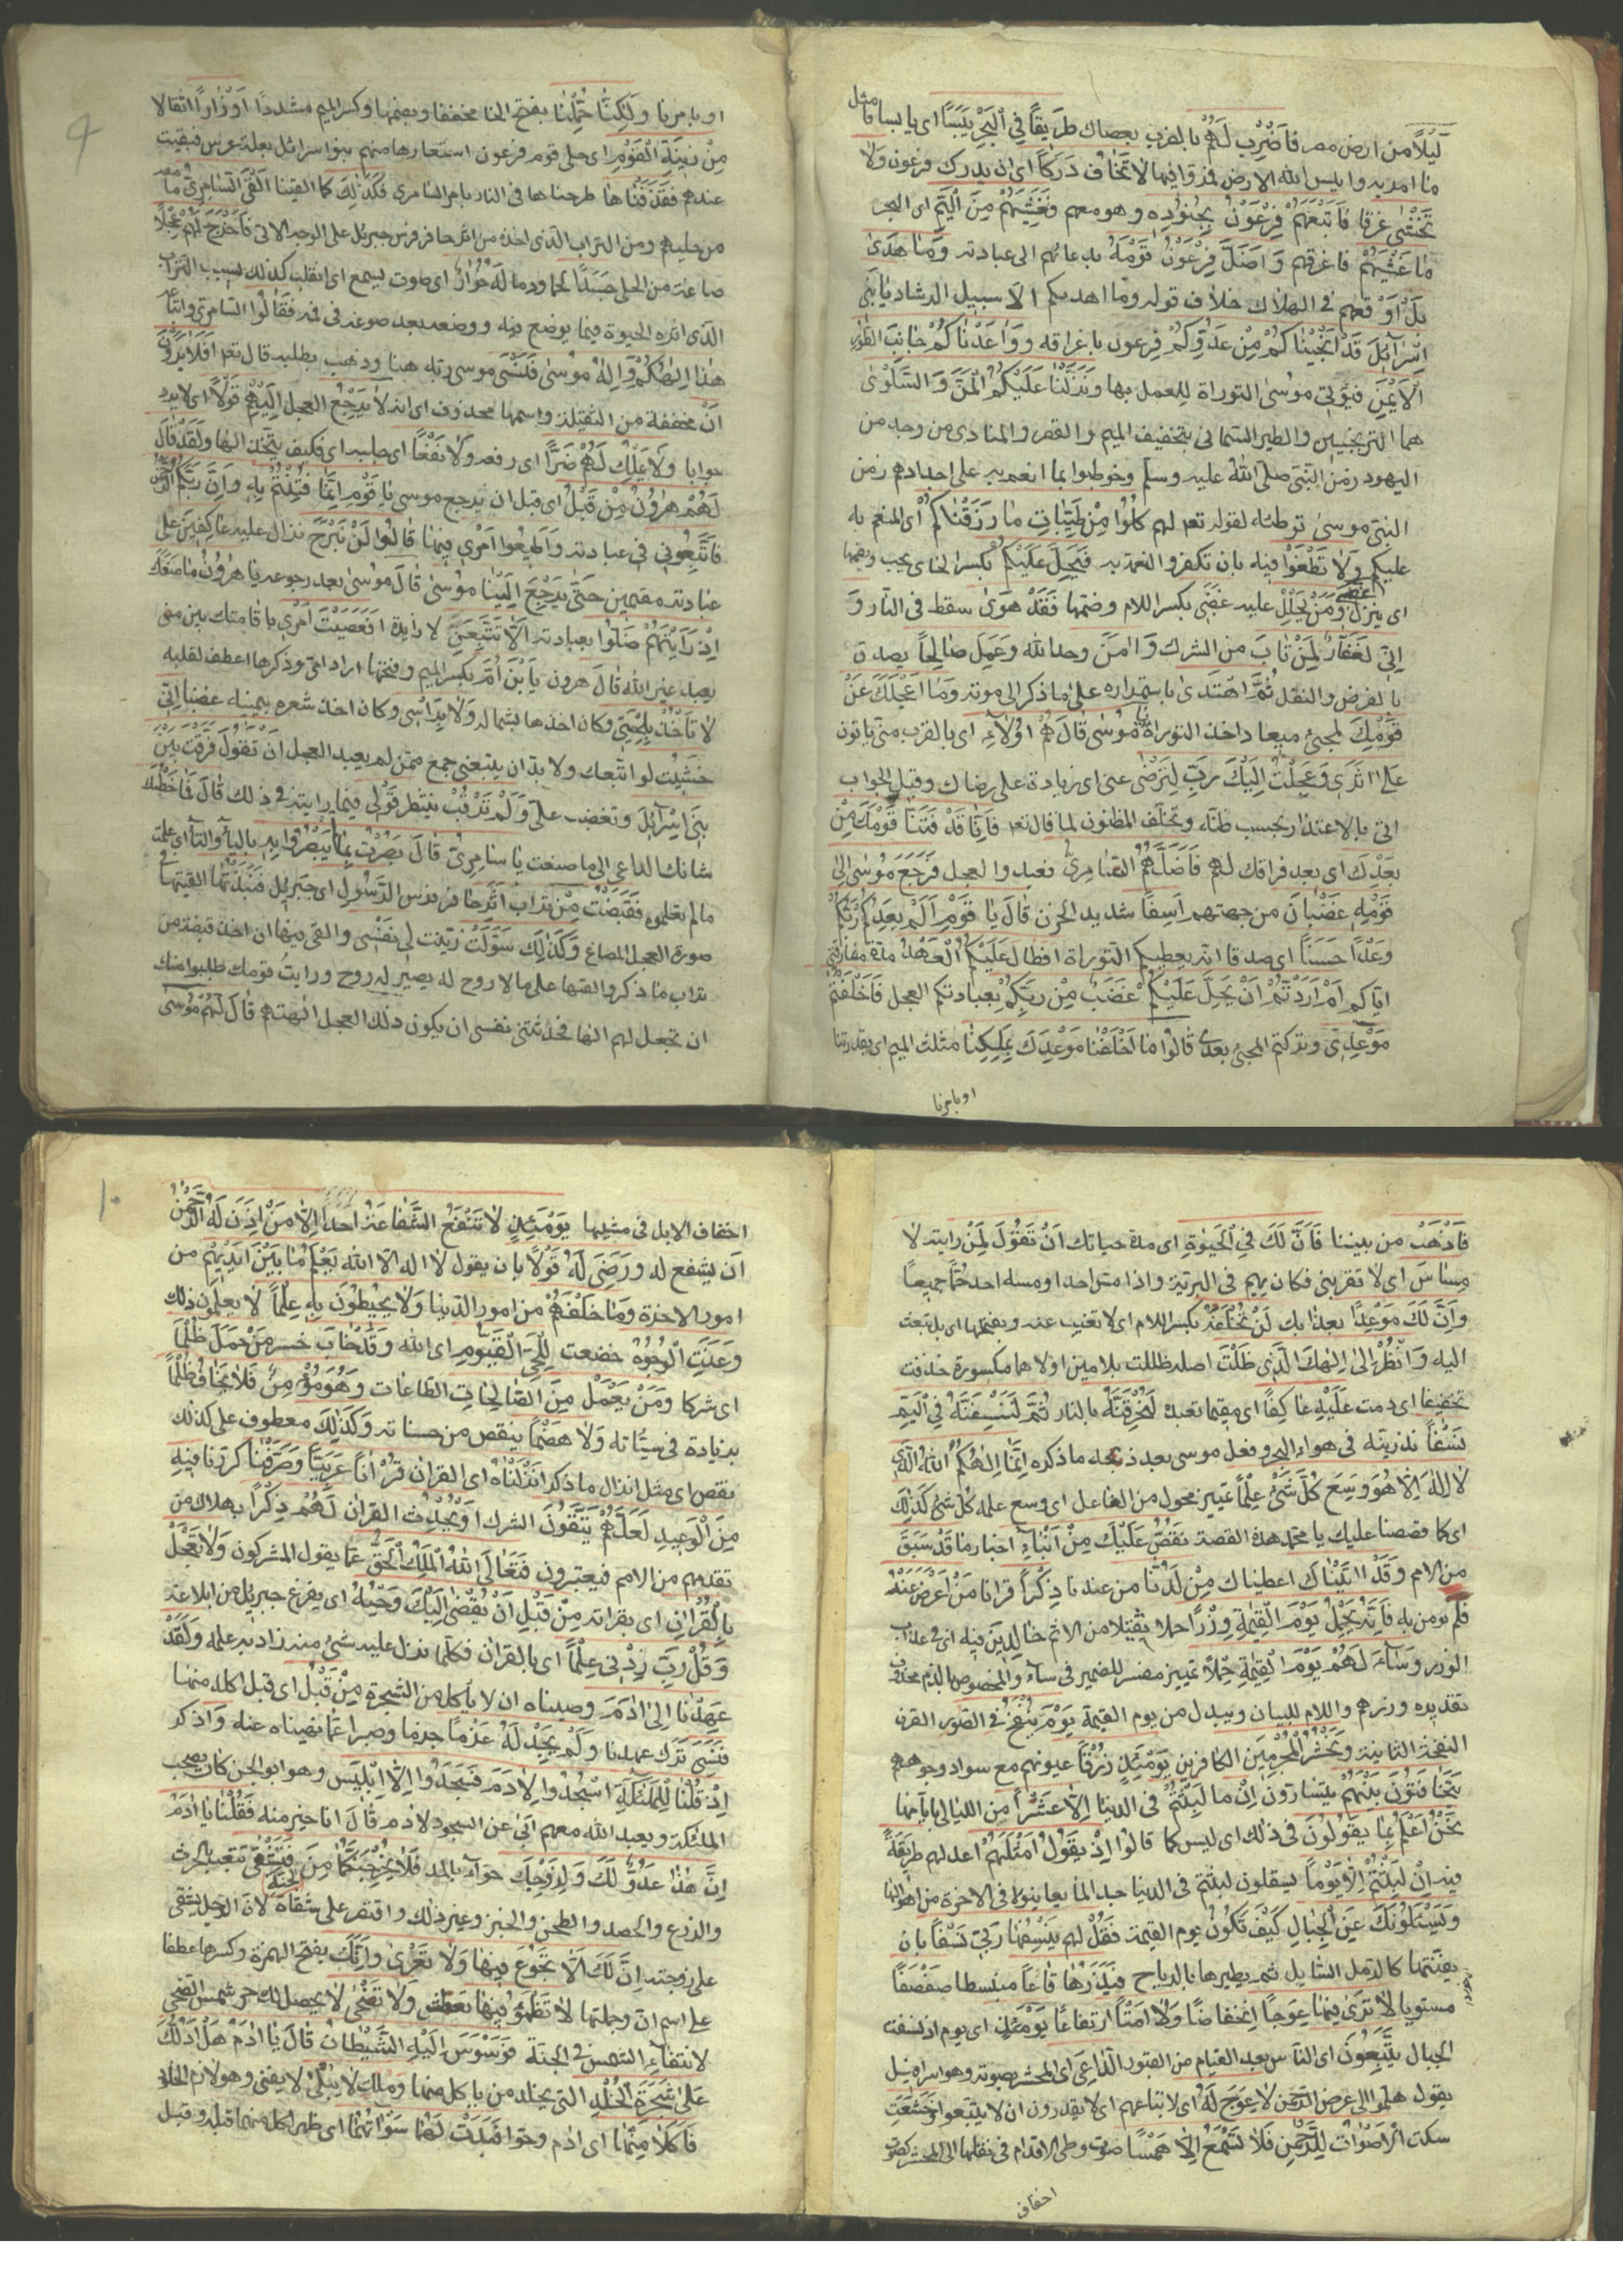 لَيْلًا من ارض مصر فَاضْرِبْ لَهُمْ بالضرب بعصاك طَرِيقًا فِي الْبَحْرِ يَبَسًا اى يابسا فامتثل
ما امر به وايبس الله الارض فمروا فيها لَا تَخَافُ دَرَكًا اى ان يدركك فرعون وَلَا
تَخْشٰى غرقا فَاَتْبَعَهُمْ فِرْعَوْنُ بِجُنُودِهِ وهو معهم فَغَشِيَهُمْ مِنَ الْيَمِّ اى البحر
مَا غَشِيَهُمْ فاغرقهم وَاَضَلَّ فِرْعَوْنُ قَوْمَهُ بدعائهم الى عبادته وَمَا هَدٰى
بل اوقعهم فى الهلاك خلاف قوله وما اهديكم الا سبيل الرشاد يَا بَنِى
اِسْرَائِلَ قَدْ اَنْجَيْنَاكُمْ مِنْ عَدُوِّكُمْ فرعون باغراقه وَوَاعَدْنَاكُمْ جَانِبَ الطُّورِ
الْاَيْمَنَ فيؤتى موسى التوراة للعمل بها وَنَزَّلْنَا عَلَيْكُمُ الْمَنَّ وَالسَّلْوٰى
هما الترنجبين والطير السمانى بتخفيف الميم والقصر والمنادى من وجد من
اليهود زمن النبى صلى الله عليه وسلم وخوطبوا بما انعم به على اجدادهم زمن
النبى موسى توطئة لقوله تعم لهم كُلُوا مِنْ طَيِّبَاتِ مَا رَزَقْنَاكُمْ اى المنعم به
عليكم وَلَا تَطْغَوْا فِيهِ بان تكفروا النعمة به فَيَحِلَّ عَلَيْكُمْ بكسر الحاى يجب وبضمها
اى ينزل غضبى وَمَنْ يَحْلِلْ عليه غَضَبِى بكسر اللام وضمها فَقَدْ هَوٰى سقط فى النار وَ
اِنِّى لَغَفَّارٌ لِمَنْ تَابَ من الشرك وَاٰمَنَ وحد الله وَعَمِلَ صَالِحًا يصدق
بالفرض والنفل ثُمَّ اهْتَدٰى باستمراره على ما ذكر الى موته وَمَا اَعْجَلَكَ عَنْ
قَوْمِكَ لمجئ ميعاد اخذ التوراة يَا مُوسٰى قَالَ هُمْ اُولَاءِ اى بالقرب منى ياتون
عَلٰى اَثَرِى وَعَجِلْتُ اِلَيْكَ رَبِّ لِتَرْضٰى عنى اى زيادة على رضاك وقبل الجواب
اتى بالاعتذار بحسب ظنه وتخلف المظنون لما قال تعم فَاِنَّا قَدْ فَتَنَّا قَوْمَكَ مِنْ
بَعْدِكَ اى بعد فراقك لهم فَاَضَلَّهُمُ السَّامِرِىُّ فعبدوا العجل فَرَجَعَ مُوسٰى اِلٰى
قَوْمِهِ غَضْبَانَ من جهتهم اَسِفًا شديد الحزن قَالَ يَا قَوْمِ اَلَمْ يَعِدْكُمْ رَبُّكُمْ
وَعْدًا حَسَنًا اى صدقا انه يعطيكم التوراة اَفَطَالَ عَلَيْكُمُ الْعَهْدُ مدة مفارقتى
اياكم اَمْ اَرَدْتُمْ اَنْ يَحِلَّ عَلَيْكُمْ غَضَبٌ مِنْ رَبِّكُمْ بعبادتكم العجل فَاَخْلَفْتُمْ
مَوْعِدِى وتركتم المجئ بعدى قَالُوا مَا اَخْلَفْنَا مَوْعِدَكَ بِمَلْكِنَا مثلث الميم اى بقدرتنا
او بامرنا
او بامرنا وَلٰكِنَّا حُمِّلْنَا بفتح الحا مخففا وبضمها وكسر الميم مشددا اَوْزَارًا اثقالا
مِنْ زِينَةِ الْقَوْمِ اى حلى قوم فرعون استعارها منهم بنو اسرائل بعلة عرس فبقيت
عندهم فَقَذَفْنَاهَا طرحناها فى النار بامر السامرى فَكَذٰلِكَ كما القينا اَلْقَى السَّامِرِىُّ ما معه
من حليهم ومن التراب الذى اخذه من اثر حافر فرس جبريل على الوجه الاتى فَاَخْرَجَ لَهُمْ عِجْلًا
صاغه من الحلى جَسَدًا لحما ودما لَهُ خُوَارٌ اى صوت يسمع اى انقلب كذلك بسبب التراب
الذى اثره الحيوة فيما يوضع فيه ووضعه بعد صوغه فى فمه فَقَالُوا السامرى واتباعه
هٰذَا اِلٰهُكُمْ وَاِلٰهُ مُوسٰى فَنَسِىَ موسى ربه هنا وذهب يطلبه قال تعم اَفَلَا يَرَوْنَ
اَنْ مخففة من الثقيلة واسمها محذوف اى انه لَا يَرْجِعُ العجل اِلَيْهِمْ قَوْلًا اى لا يرد
جوابا وَلَا يَمْلِكُ لَهُمْ ضَرًّا اى رفعه وَلَا نَفْعًا اى جلبه اى فكيف يتخذ الها وَلَقَدْ قَالَ
لَهُمْ هٰرُونُ مِنْ قَبْلُ اى قبل ان يرجع موسى يَا قَوْمِ اِنَّمَا فُتِنْتُمْ بِهِ وَاِنَّ رَبَّكُمُ الرَّحْمٰنُ
فَاتَّبِعُونِى فى عبادته وَاَطِيعُوا اَمْرِى فيها قَالُوا لَنْ نَبْرَحَ نزال عليه عَاكِفِينَ على
عبادته مقيمين حَتّٰى يَرْجِعَ اِلَيْنَا مُوسٰى قَالَ موسى بعد رجوعه يَا هٰرُونُ مَا مَنَعَكَ
اِذْ رَاَيْتَهُمْ ضَلُّوا بعبادته اَلَّا تَتَّبِعَنِ لا زايدة اَفَعَصَيْتَ اَمْرِى باقامتك بين من
يعبد غير الله قَالَ هرون يَا ابْنَ اُمَّ بكسر الميم وفتحها اراد امى وذكرها اعطف لقلبه
لَا تَاْخُذْ بِلِحْيَتِى وكان اخذها بشماله وَلَا بِرَاْسِى وكان اخذ شعره بيمينه غضبا اِنِّى
خَشِيتُ لو اتبعك ولا بد ان يتبعنى جمع ممن لم يعبد العجل اَنْ تَقُولَ فَرَّقْتَ بَيْنَ
بَنِى اِسْرَائِلَ وتغضب على وَلَمْ تَرْقُبْ تنتظر قَوْلِى فيما رايته فى ذلك قَالَ فَمَا خَطْبُكَ
شانك الداعى الى ما صنعت يَا سَامِرِىُّ قَالَ بَصُرْتُ بِمَا لَمْ يَبْصُرُوا بِهِ باليا والتا اى علمت
ما لم يعلموه فَقَبَضْتُ مِنْ تراب اَثَرِ حا فر فرس الرَّسُولِ اى جبريل فَنَبَذْتُهَا القيتها فى
صورة العجل المصاغ وَكَذٰلِكَ سَوَّلَتْ زينت لِى نَفْسِى والقى فيها ان اخذ قبضة من
تراب ما ذكر والقيها على ما لا روح له يصير له روح ورايت قومك طلبوا منك
ان تجعل لهم الها فحدثتنى نفسى ان يكون ذلك العجل الهتهم قَالَ لهم موسى
فَاذْهَبْ من بيننا فَاِنَّ لَكَ فِى الْحَيٰوةِ اى مدة حياتك اَنْ تَقُولَ لمن رايته لَا
مِسَاسَ اى لا تقربنى فكان يهيم فى البرية واذا مس احدا او مسه احد حما جميعا
وَاِنَّ لَكَ مَوْعِدًا بعذابك لَنْ تُخْلَفَهُ بكسر اللام اى لا تغيب عنه وبفتحها اى بل تبعث
اليه وَانْظُرْ اِلٰى اِلٰهِكَ الَّذِى ظَلْتَ اصله ظللت بلامين اولاهما مكسورة حذفت
تخفيفا اى دمت عَلَيْهِ عَاكِفًا اى مقيما تعبده لَنُحَرِّقَنَّهُ بالنار ثُمَّ لَنَنْسِفَنَّهُ فِى الْيَمِّ
نَسْفًا نذرينه فى هواء البحر وفعل موسى بعد ذبحه ما ذكره اِنَّمَا اِلٰهُكُمُ اللهُ الَّذِى
لَا اِلٰهَ اِلَّا هُوَ وَسِعَ كُلَّ شَىْءٍ عِلْمًا تمييز محول من الفاعل اى وسع علمه كل شئ كَذٰلِكَ
اى كما قصصنا عليك يا محمد هذه القصة نَقُصُّ عَلَيْكَ مِنْ اَنْبَاءِ اخبار مَا قَدْ سَبَقَ
من الامم وَقَدْ اٰتَيْنَاكَ اعطيناك مِنْ لَدُنَّا من عندنا ذِكْرًا قرانا مَنْ اَعْرَضَ عَنْهُ
فلم يومن به فَاِنَّهُ يَحْمِلُ يَوْمَ الْقِيٰمَةِ وِزْرًا حملا ثقيلا من الاثم خَالِدِينَ فِيهِ اى فى عذاب
الوزر وَسَاءَ لَهُمْ يَوْمَ الْقِيٰمَةِ حِمْلًا تمييز مفسر للضمير فى ساء والمخصوص بالذم محذوف
تقديره وزرهم واللام للبيان ويبدل من يوم القيمة يَوْمَ يُنْفَخُ فِى الصُّورِ القرن
النفخة الثانية وَنَحْشُرُ الْمُجْرِمِينَ الكافرين يَوْمَئِذٍ زُرْقًا عيونهم مع سواد وجوههم
يَتَخَافَتُونَ بَيْنَهُمْ يتسارون اِنْ ما لَبِثْتُمْ فى الدنيا اِلَّا عَشْرًا من الليالى بايامها
نَحْنُ اَعْلَمُ بِمَا يَقُولُونَ فى ذلك اى ليس كما قالوا اِذْ يَقُولُ اَمْثَلُهُمْ اعدلهم طَرِيقَةً
فيه اِنْ لَبِثْتُمْ اِلَّا يَوْمًا يستقلون لبثهم فى الدنيا جدا لما يعاينوه فى الاخرة من اهوالها
وَيَسْئَلُونَكَ عَنِ الْجِبَالِ كيف تكون يوم القيمة فَقُلْ لهم يَنْسِفُهَا رَبِّى نَسْفًا بان
يفتتها كالرمل السايل ثم يطيرها بالرياح فَيَذَرُهَا قَاعًا منبسطا صَفْصَفًا
مستويا لَا تَرٰى فِيهَا عِوَجًا انخفاضا وَلَا اَمْتًا ارتفاعا يَوْمَئِذٍ اى يوم اذ نسفت
الجبال يَتَّبِعُونَ اى الناس بعد القيام من القبور الدَّاعِىَ اى المحشر بصوته وهو اسرافيل
يقول هلموا الى عرض الرحمن لَا عِوَجَ لَهُ اى لاتباعهم اى لا يقدرون ان لا يتبعوا وَخَشَعَتِ
سكنت الْاَصْوَاتُ لِلرَّحْمٰنِ فَلَا تَسْمَعُ اِلَّا هَمْسًا صوت وطى الاقدام فى نقلها الى المحشر كصوت
اخفاف
١٠
اخفاف الابل فى مشيها يَوْمَئِذٍ لَا تَنْفَعُ الشَّفَاعَةُ احدا اِلَّا مَنْ اَذِنَ لَهُ الرَّحْمٰنُ
ان يشفع له وَرَضِىَ لَهُ قَوْلًا بان يقول لا اله الا الله يَعْلَمُ مَا بَيْنَ اَيْدِيهِمْ من
امور الاخرة وَمَا خَلْفَهُمْ من امور الدنيا وَلَا يُحِيطُونَ بِهِ عِلْمًا لا يعلمون ذلك
وَعَنَتِ الْوُجُوهُ خضعت لِلْحَىِّ الْقَيُّومِ اى الله وَقَدْ خَابَ خسر مَنْ حَمَلَ ظُلْمًا
اى شركا وَمَنْ يَعْمَلْ مِنَ الصَّالِحَاتِ الطاعات وَهُوَ مُؤْمِنٌ فَلَا يَخَافُ ظُلْمًا
بزيادة فى سيئاته وَلَا هَضْمًا بنقص من حسناته وَكَذٰلِكَ معطوف على كذلك
نقص اى مثل انزال ما ذكر اَنْزَلْنَاهُ اى القران قُرْاٰنًا عَرَبِيًّا وَصَرَّفْنَا كررنا فِيهِ
مِنَ الْوَعِيدِ لَعَلَّهُمْ يَتَّقُونَ الشرك اَوْ يُحْدِثُ القران لَهُمْ ذِكْرًا بهلاك من
تقدمهم من الامم فيعتبرون فَتَعَالَى اللهُ الْمَلِكُ الْحَقُّ عما يقول المشركون وَلَا تَعْجَلْ
بِالْقُرْاٰنِ اى بقراته مِنْ قَبْلِ اَنْ يُقْضٰى اِلَيْكَ وَحْيُهُ اى يفرغ جبريل من ابلاغه
وَقُلْ رَبِّ زِدْنِى عِلْمًا اى بالقران فكلما نزل عليه شئ منه زاد به علمه وَلَقَدْ
عَهِدْنَا اِلٰى اٰدَمَ وصيناه ان لا ياكل من الشجرة مِنْ قَبْلُ اى قبل اكله منها
فَنَسِىَ ترك عهدنا وَلَمْ نَجِدْ لَهُ عَزْمًا جزما وصبرا عما نهيناه عنه وَاذكر
اِذْ قُلْنَا لِلْمَلٰئِكَةِ اسْجُدُوا لِاٰدَمَ فَسَجَدُوا اِلَّا اِبْلِيسَ وهو ابو الجن كان يصحب
الملئكة ويعبد الله معهم اَبٰى عن السجود لادم قال انا خير منه فَقُلْنَا يَا اٰدَمُ
اِنَّ هٰذَا عَدُوٌّ لَكَ وَلِزَوْجِكَ حواء بالمد فَلَا يُخْرِجَنَّكُمَا مِنَ الجنة فَتَشْقٰى تتعب بالحرث
والزرع والحصد والطحن والخبز وغير ذلك واقتصر على شقاه لان الرجل يشقى
على زوجته اِنَّ لَكَ اَلَّا تَجُوعَ فِيهَا وَلَا تَعْرٰى وَاَنَّكَ بفتح الهمزة وكسرها عطفا
على اسم ان وجملتها لَا تَظْمَؤُ فِيهَا تعطش وَلَا تَضْحٰى لا يحصل لك حر شمس الضحى
لانتفاء الشمس فى الجنة فَوَسْوَسَ اِلَيْهِ الشَّيْطَانُ قَالَ يَا اٰدَمُ هَلْ اَدُلُّكَ
عَلٰى شَجَرَةِ الْخُلْدِ التى يخلد من ياكل منها وَمُلْكٍ لَا يَبْلٰى لا يفنى وهو لازم الخلد
فَاَكَلَا مِنْهَا اى ادم وحوا فَبَدَتْ لَهُمَا سَوْاٰتُهُمَا اى ظهر لكل منهما قبله وقبل